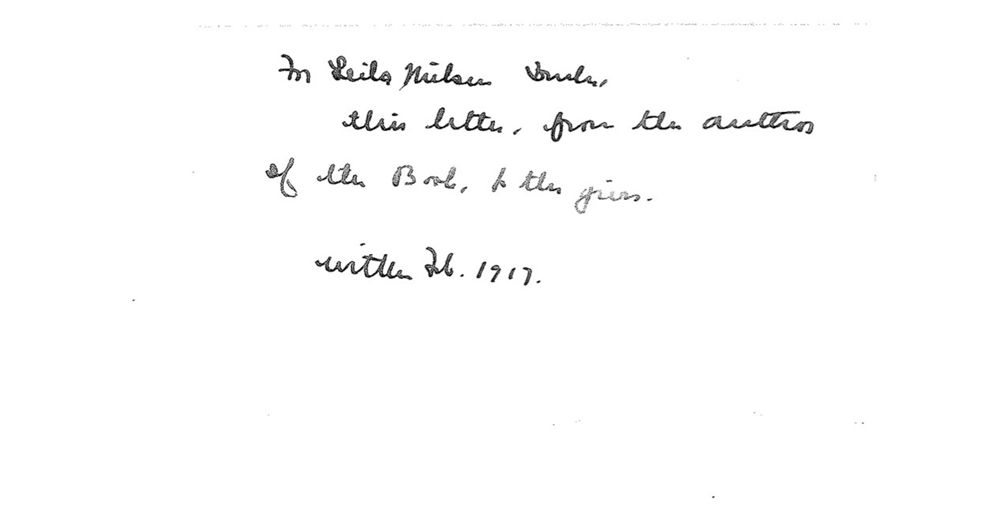 For Leila Nielsen
this letter, from the author
of the Book, to the giver.
written Feb. 1917.